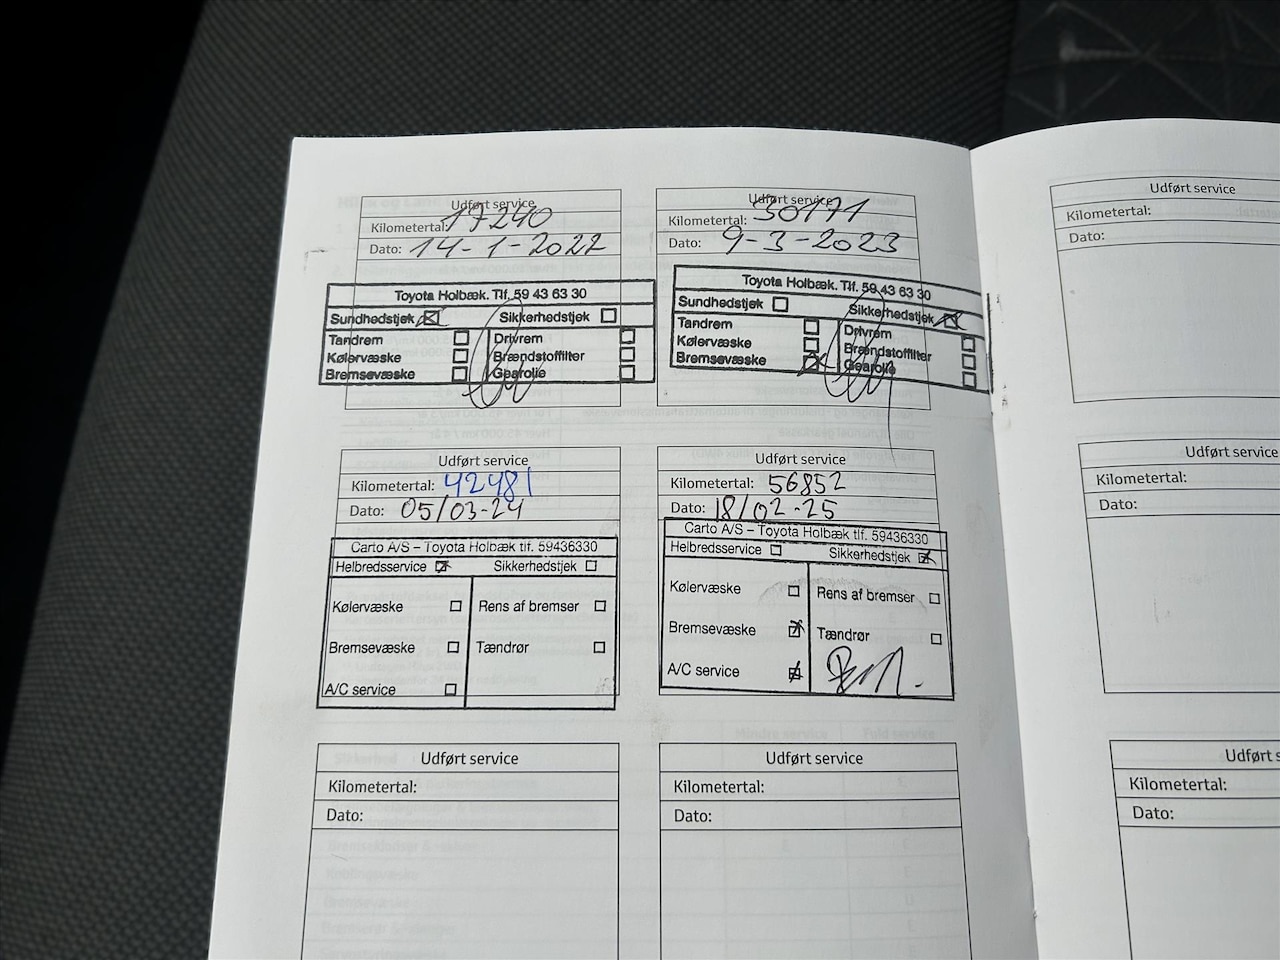 Udført service
Kilometertal: 17240
Dato: 14-1-2022
Toyota Holbæk. Tlf. 59 43 63 30
Sundhedstjek Sikkerhedstjek
Tandrem Drivrem
Kølervæske Brændstoffilter
Bremsevæske Gearolie
Udført service
Kilometertal: 30171
Dato: 9-3-2023
Toyota Holbæk. Tlf. 59 43 63 30
Sundhedstjek Sikkerhedstjek
Tandrem Drivrem
Kølervæske Brændstoffilter
Bremsevæske Gearolie
Udført service
Kilometertal: 42481
Dato: 05/03-24
Carto A/S – Toyota Holbæk tlf. 59436330
Helbredsservice Sikkerhedstjek
Kølervæske Rens af bremser
Bremsevæske Tændrør
A/C service
Udført service
Kilometertal: 56852
Dato: 18/02-25
Carto A/S – Toyota Holbæk tlf. 59436330
Helbredsservice Sikkerhedstjek
Kølervæske Rens af bremser
Bremsevæske Tændrør
A/C service
Udført service
Kilometertal:
Dato:
Udført service
Kilometertal:
Dato:
Udført service
Kilometertal:
Dato:
Udført service
Kilometertal:
Dato:
Udført s
Kilometertal:
Dato: